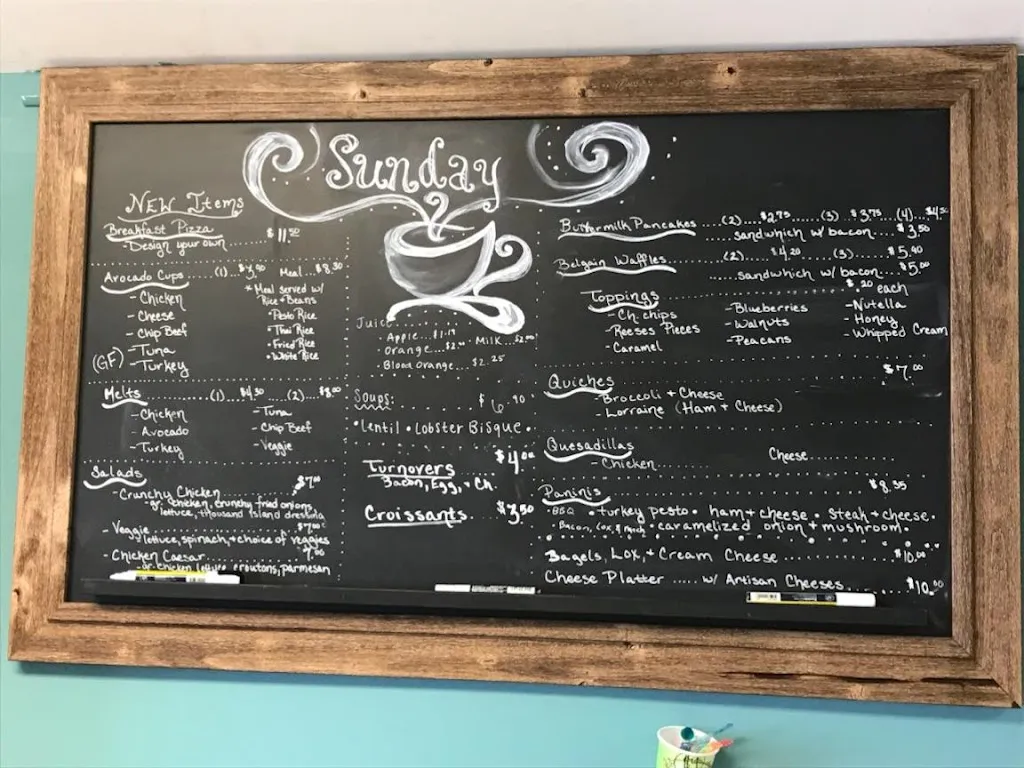 Sunday
NEW Items
Breakfast Pizza
- Design your own ........ $11.50
Avocado Cups (1)... Meal... $8.30
- Chicken
- Cheese
- Chip Beef
- Tuna
(GF) - Turkey
* Meal served w/
Rice + Beans
• Pesto Rice
• Thai Rice
• Fried Rice
• White Rice
Melts ........ (1) .... $4.50 (2) .... $8.00
- Chicken
- Avocado
- Turkey
- Tuna
- Chip Beef
- Veggie
Salads
- Crunchy Chicken ........ $7.00
- gr chicken, crunchy fried onions
lettuce, thousand island dressing
- Veggie ........ $7.00
lettuce, spinach, + choice of veggies
- Chicken Caesar ........ 7.00
- gr chicken lettuce croutons, parmesan
Juice
• Apple ... • Milk ... $2.00
• Orange ...
• Blood Orange ... $2.25
Soups: $6.90
• Lentil • Lobster Bisque •
Turnovers $4.00
Bacon, Egg, + Ch.
Croissants $3.50
Buttermilk Pancakes (2) .... $2.75 (3) $3.75 (4) .... $4.50
...... sandwhich w/ bacon ... $3.50
Belgain Waffles (2) ... $4.20 (3) .... $5.90
...... sandwhich w/ bacon .... $5.00
Toppings ........ $.20 each
- Ch. chips
- Reeses Pieces
- Caramel
- Blueberries
- Walnuts
- Peacans
- Nutella
- Honey
- Whipped Cream
Quiches ........ $7.00
- Broccoli + Cheese
- Lorraine (Ham + Cheese)
Quesadillas
- Chicken ........ Cheese ........
Paninis ........ $8.35
• BBQ • turkey pesto • ham + cheese • steak + cheese •
• Bacon, • caramelized onion + mushroom •
Bagels, Lox, + Cream Cheese ........ $10.00
Cheese Platter ..... w/ Artisan Cheeses ........ $10.00